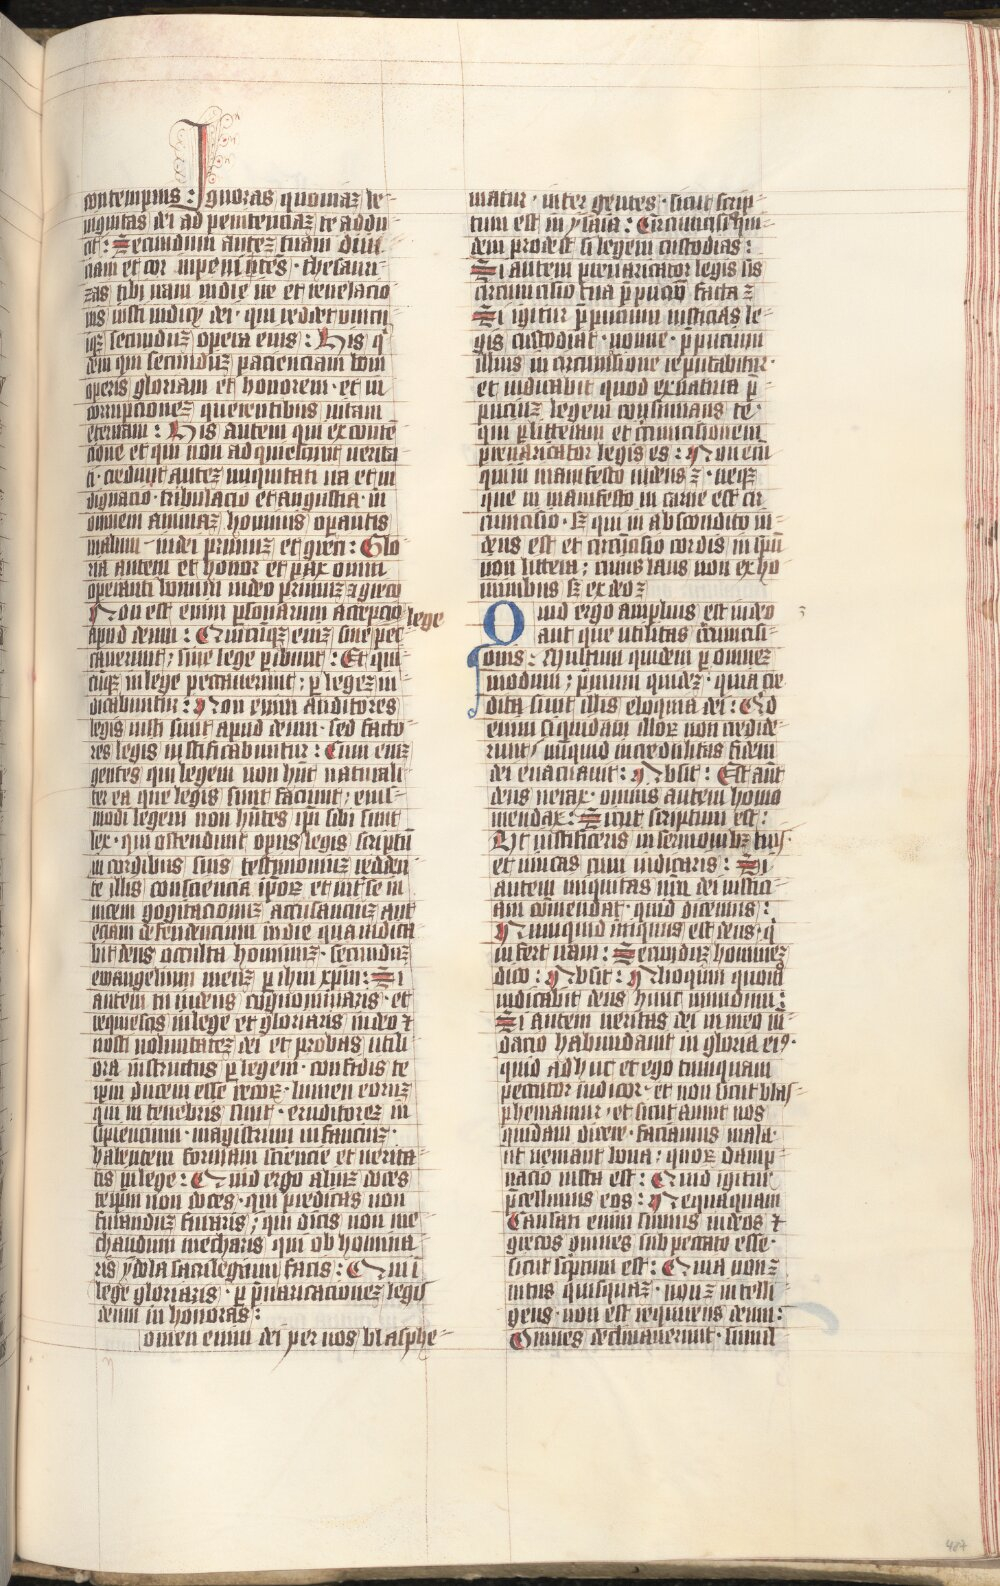 contempnis : Ignoras quoniaz be-
nignitas dei ad penitenciaz te addu-
cit : Secundum autez tuam duri-
ciam et cor inpenitens · thesauri-
zas tibi iram in die ire et revelacio-
nis iusti iudicii dei · qui reddet unicu-
iqz secunduz opera eius : His q
dem qui secunduz pacienciam boni
operis gloriam et honorem · et in
corrupcionez querentibus vitam
eternam : His autem qui ex conte
cione et qui non adquiescunt verita-
ti · credunt autez iniquitati ira et in
dignacio · tribulacio et angustia · in
omnem animaz hominis operantis
malum · iudei primuz et greci : Glo
ria autem et honor et pax omni
operanti bonum iudeo primuz z greco
Non est enim psonarum accepcio
apud deum : Quicuqz eniz sine pec lege
caverunt ; sine lege pibunt : Et qui
cuqz in lege peccaverunt ; p legez iu
dicabuntur : Non enim auditores
legis iusti sunt apud deum · sed facto
res legis iustificabuntur : Cum eniz
gentes qui legem non hnt naturali-
ter ea que legis sunt faciunt ; eius-
modi legem non hntes ipi sibi sunt
lex · qui ostendunt opus legis scriptu
in cordibus suis testimoniuz redden
te illis consciencia ipoz et int se in
vicem gogitacionuz accusanciuz aut
eciam defendencium in die qua iudica
bit deus occulta hominuz · secunduz
ewangelium meuz p ihu xpm : Si
autem tu iudeus cognominaris · et
requiescis in lege et gloriaris in deo z
nosti voluntatez dei et probas utili
ora instructus p legem · confidis te
ipm ducem esse cecoz · lumen eoruz
qui in tenebris sunt · eruditorez in
sipiencium · magistrum infanciuz ·
habentem formam sciencie et verita-
tis in lege : Quid ergo aliuz doces
teipm non doces · qui predicas non
furanduz furaris ; qui dicis non me
chandum mecharis qui abhomina-
ris ydola sacrilegium facis : Qui i
lege gloriaris · p pvaricacionez legis
deum in honoras :
omen enim dei per vos blasphe-
matur · inter gentes · sicut scrip-
tum est in ysaia : Circumcisio qui-
dem prodest si legem custodias :
Si autem prevaricator legis sis
circumcisio tua ppuciu facta z
Si igitur ppucium iusticias le-
gis custodiat · nonne · ppucium
illius in circumcisione reputabitur ·
et iudicabit quod ex natura p-
puciuz legem consumans te ·
qui p litteram et circumcisionem
prevaricator legis es : Non eni
qui in manifesto iudeus z · neqz
que in manifesto in carne est cir
cumcisio · sz qui in abscondito iu-
deus est et circucisio cordis in spu
non littera ; cuius laus non ex ho
minibus sz ex deo z
Quid ergo amplius est iudeo
aut que utilitas circumcisi-
onis : Multum quidem p omnez
modum ; pmum quidez · quia cre
dita sunt illis eloquia dei : Quid
enim si quidam illoz non credide-
runt / nuquid incredulitas fidem
dei evacuavit : Absit : Est aut
deus verax · omnis autem homo
mendax : Sicut scriptum est :
Ut iustificeris in sermonibz tuis ·
et vincas cum iudicaris : Si
autem iniquitas nra dei iustici-
am comendat · quid dicemus :
Nunquid iniquus est deus · q
infert iram : Secunduz hominez
dico : Absit : Alioquin quomo
iudicabit deus hunc mundum :
Si autem veritas dei in meo m-
dacio habundavit in gloria ei9 ·
quid adhuc et ego tamquam
peccator iudicor · et non sicut blas-
phemamur · et sicut aiunt nos
quidam dicere · faciamus mala ·
ut veniant bona ; quoz damp
nacio iusta est : Quid igitur
pcellimus eos : Nequaquam
Causati enim sumus iudeos z
grecos omnes sub peccato esse ·
sicut scptum est : Quia non z
iustus quisquaz · non z intelli
gens · non est requirens deum :
Omnes declinaverunt · simul
487